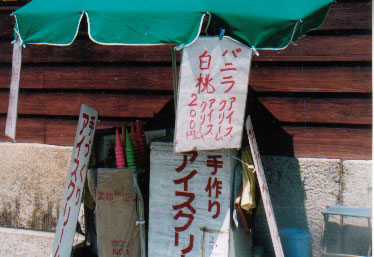 バニラアイスクリーム
白桃アイスクリーム
200円
手作り
アイスクリ
手づくり
アイスクリ